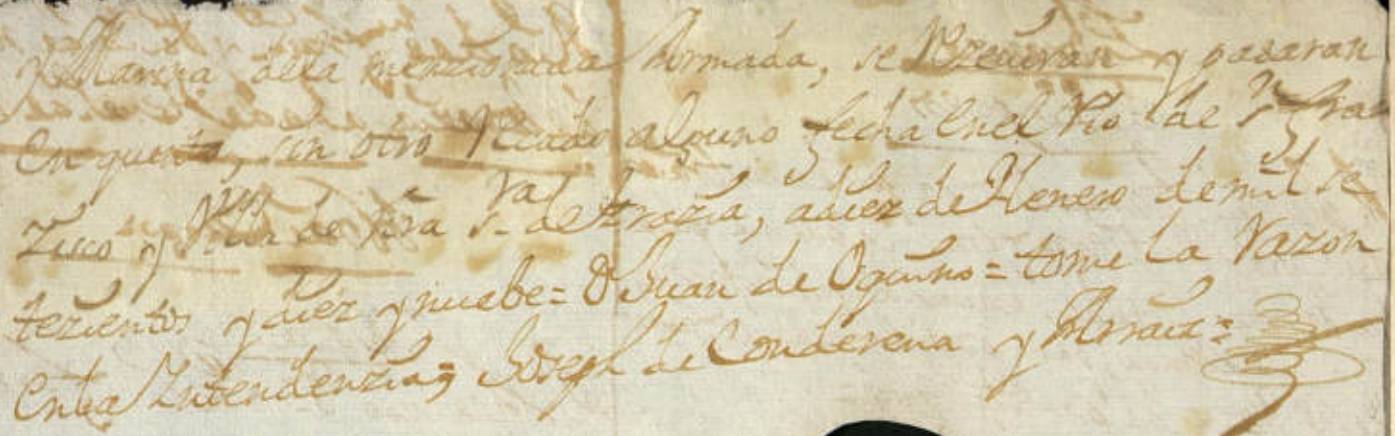 y Marina dela mencionada Armada, se Rzeuiran y pasaran
en quenta, sin otro Rcado alguno fecha en el Rio de Sn Fran
zisco y de nra Sra de Grazia, adiez de Henero de mil se
tezientos y diez y nuebe = Dn Juan de Oquino = tome la Razon
en la Intendenzia, Joseph de Conderena y Arraiz =